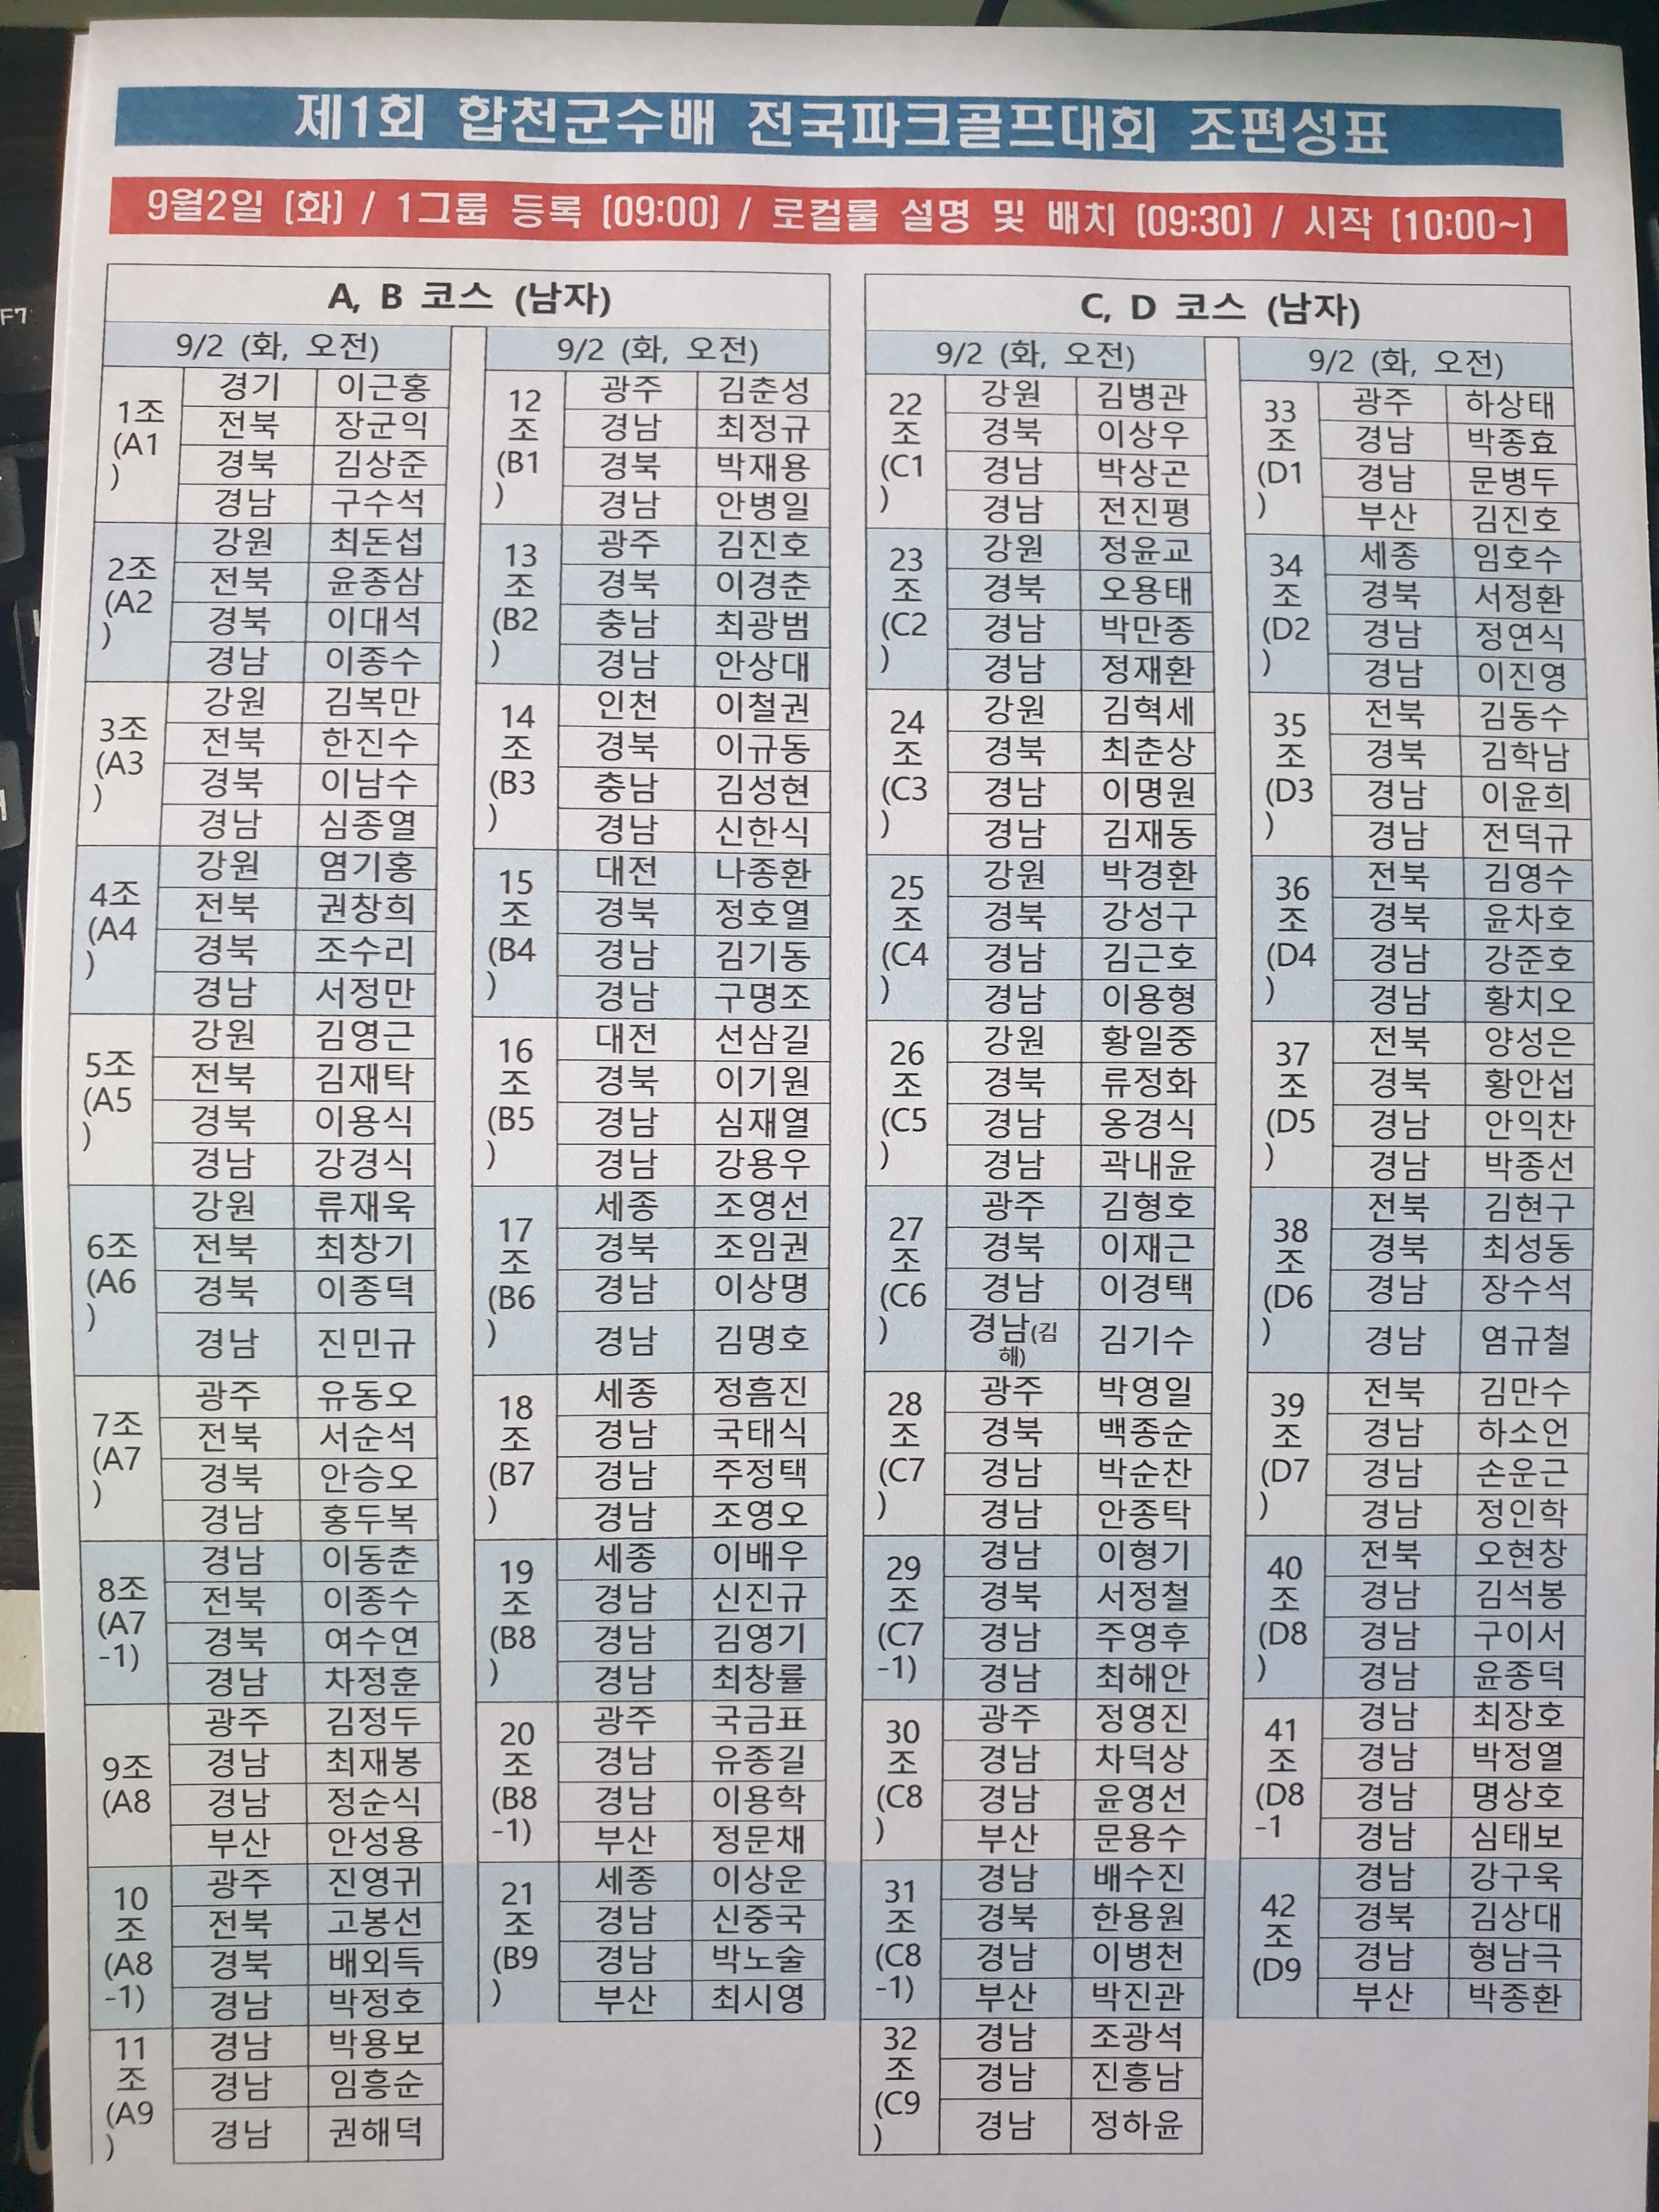 제1회 합천군수배 전국파크골프대회 조편성표
9월2일 (화) / 1그룹 등록 (09:00) / 로컬룰 설명 및 배치 (09:30) / 시작 (10:00~)
A, B 코스 (남자)
9/2 (화, 오전)
1조 (A1)
경기 이근홍
전북 장군익
경북 김상준
경남 구수석
2조 (A2)
강원 최돈섭
전북 윤종삼
경북 이대석
경남 이종수
3조 (A3)
강원 김복만
전북 한진수
경북 이남수
경남 심종열
4조 (A4)
강원 염기홍
전북 권창희
경북 조수리
경남 서정만
5조 (A5)
강원 김영근
전북 김재탁
경북 이용식
경남 강경식
6조 (A6)
강원 류재욱
전북 최창기
경북 이종덕
경남 진민규
7조 (A7)
광주 유동오
전북 서순석
경북 안승오
경남 홍두복
8조 (A7-1)
경남 이동춘
전북 이종수
경북 여수연
경남 차정훈
9조 (A8
광주 김정두
경남 최재봉
경남 정순식
부산 안성용
10조 (A8-1)
광주 진영귀
전북 고봉선
경북 배외득
경남 박정호
11조 (A9)
경남 박용보
경남 임흥순
경남 권해덕
9/2 (화, 오전)
12조 (B1)
광주 김춘성
경남 최정규
경북 박재용
경남 안병일
13조 (B2)
광주 김진호
경북 이경춘
충남 최광범
경남 안상대
14조 (B3)
인천 이철권
경북 이규동
충남 김성현
경남 신한식
15조 (B4)
대전 나종환
경북 정호열
경남 김기동
경남 구명조
16조 (B5)
대전 선삼길
경북 이기원
경남 심재열
경남 강용우
17조 (B6)
세종 조영선
경북 조임권
경남 이상명
경남 김명호
18조 (B7)
세종 정흠진
경남 국태식
경남 주정택
경남 조영오
19조 (B8)
세종 이배우
경남 신진규
경남 김영기
경남 최창률
20조 (B8-1)
광주 국금표
경남 유종길
경남 이용학
부산 정문채
21조 (B9)
세종 이상운
경남 신중국
경남 박노술
부산 최시영
C, D 코스 (남자)
9/2 (화, 오전)
22조 (C1)
강원 김병관
경북 이상우
경남 박상곤
경남 전진평
23조 (C2)
강원 정윤교
경북 오용태
경남 박만종
경남 정재환
24조 (C3)
강원 김혁세
경북 최춘상
경남 이명원
경남 김재동
25조 (C4)
강원 박경환
경북 강성구
경남 김근호
경남 이용형
26조 (C5)
강원 황일중
경북 류정화
경남 옹경식
경남 곽내윤
27조 (C6)
광주 김형호
경북 이재근
경남 이경택
경남(김해) 김기수
28조 (C7)
광주 박영일
경북 백종순
경남 박순찬
경남 안종탁
29조 (C7-1)
경남 이형기
경북 서정철
경남 주영후
경남 최해안
30조 (C8)
광주 정영진
경남 차덕상
경남 윤영선
부산 문용수
31조 (C8-1)
경남 배수진
경북 한용원
경남 이병천
부산 박진관
32조 (C9)
경남 조광석
경남 진흥남
경남 정하윤
9/2 (화, 오전)
33조 (D1)
광주 하상태
경남 박종효
경남 문병두
부산 김진호
34조 (D2)
세종 임호수
경북 서정환
경남 정연식
경남 이진영
35조 (D3)
전북 김동수
경북 김학남
경남 이윤희
경남 전덕규
36조 (D4)
전북 김영수
경북 윤차호
경남 강준호
경남 황치오
37조 (D5)
전북 양성은
경북 황안섭
경남 안익찬
경남 박종선
38조 (D6)
전북 김현구
경북 최성동
경남 장수석
경남 염규철
39조 (D7)
전북 김만수
경남 하소언
경남 손운근
경남 정인학
40조 (D8)
전북 오현창
경남 김석봉
경남 구이서
경남 윤종덕
41조 (D8-1
경남 최장호
경남 박정열
경남 명상호
경남 심태보
42조 (D9
경남 강구욱
경북 김상대
경남 형남극
부산 박종환
F7